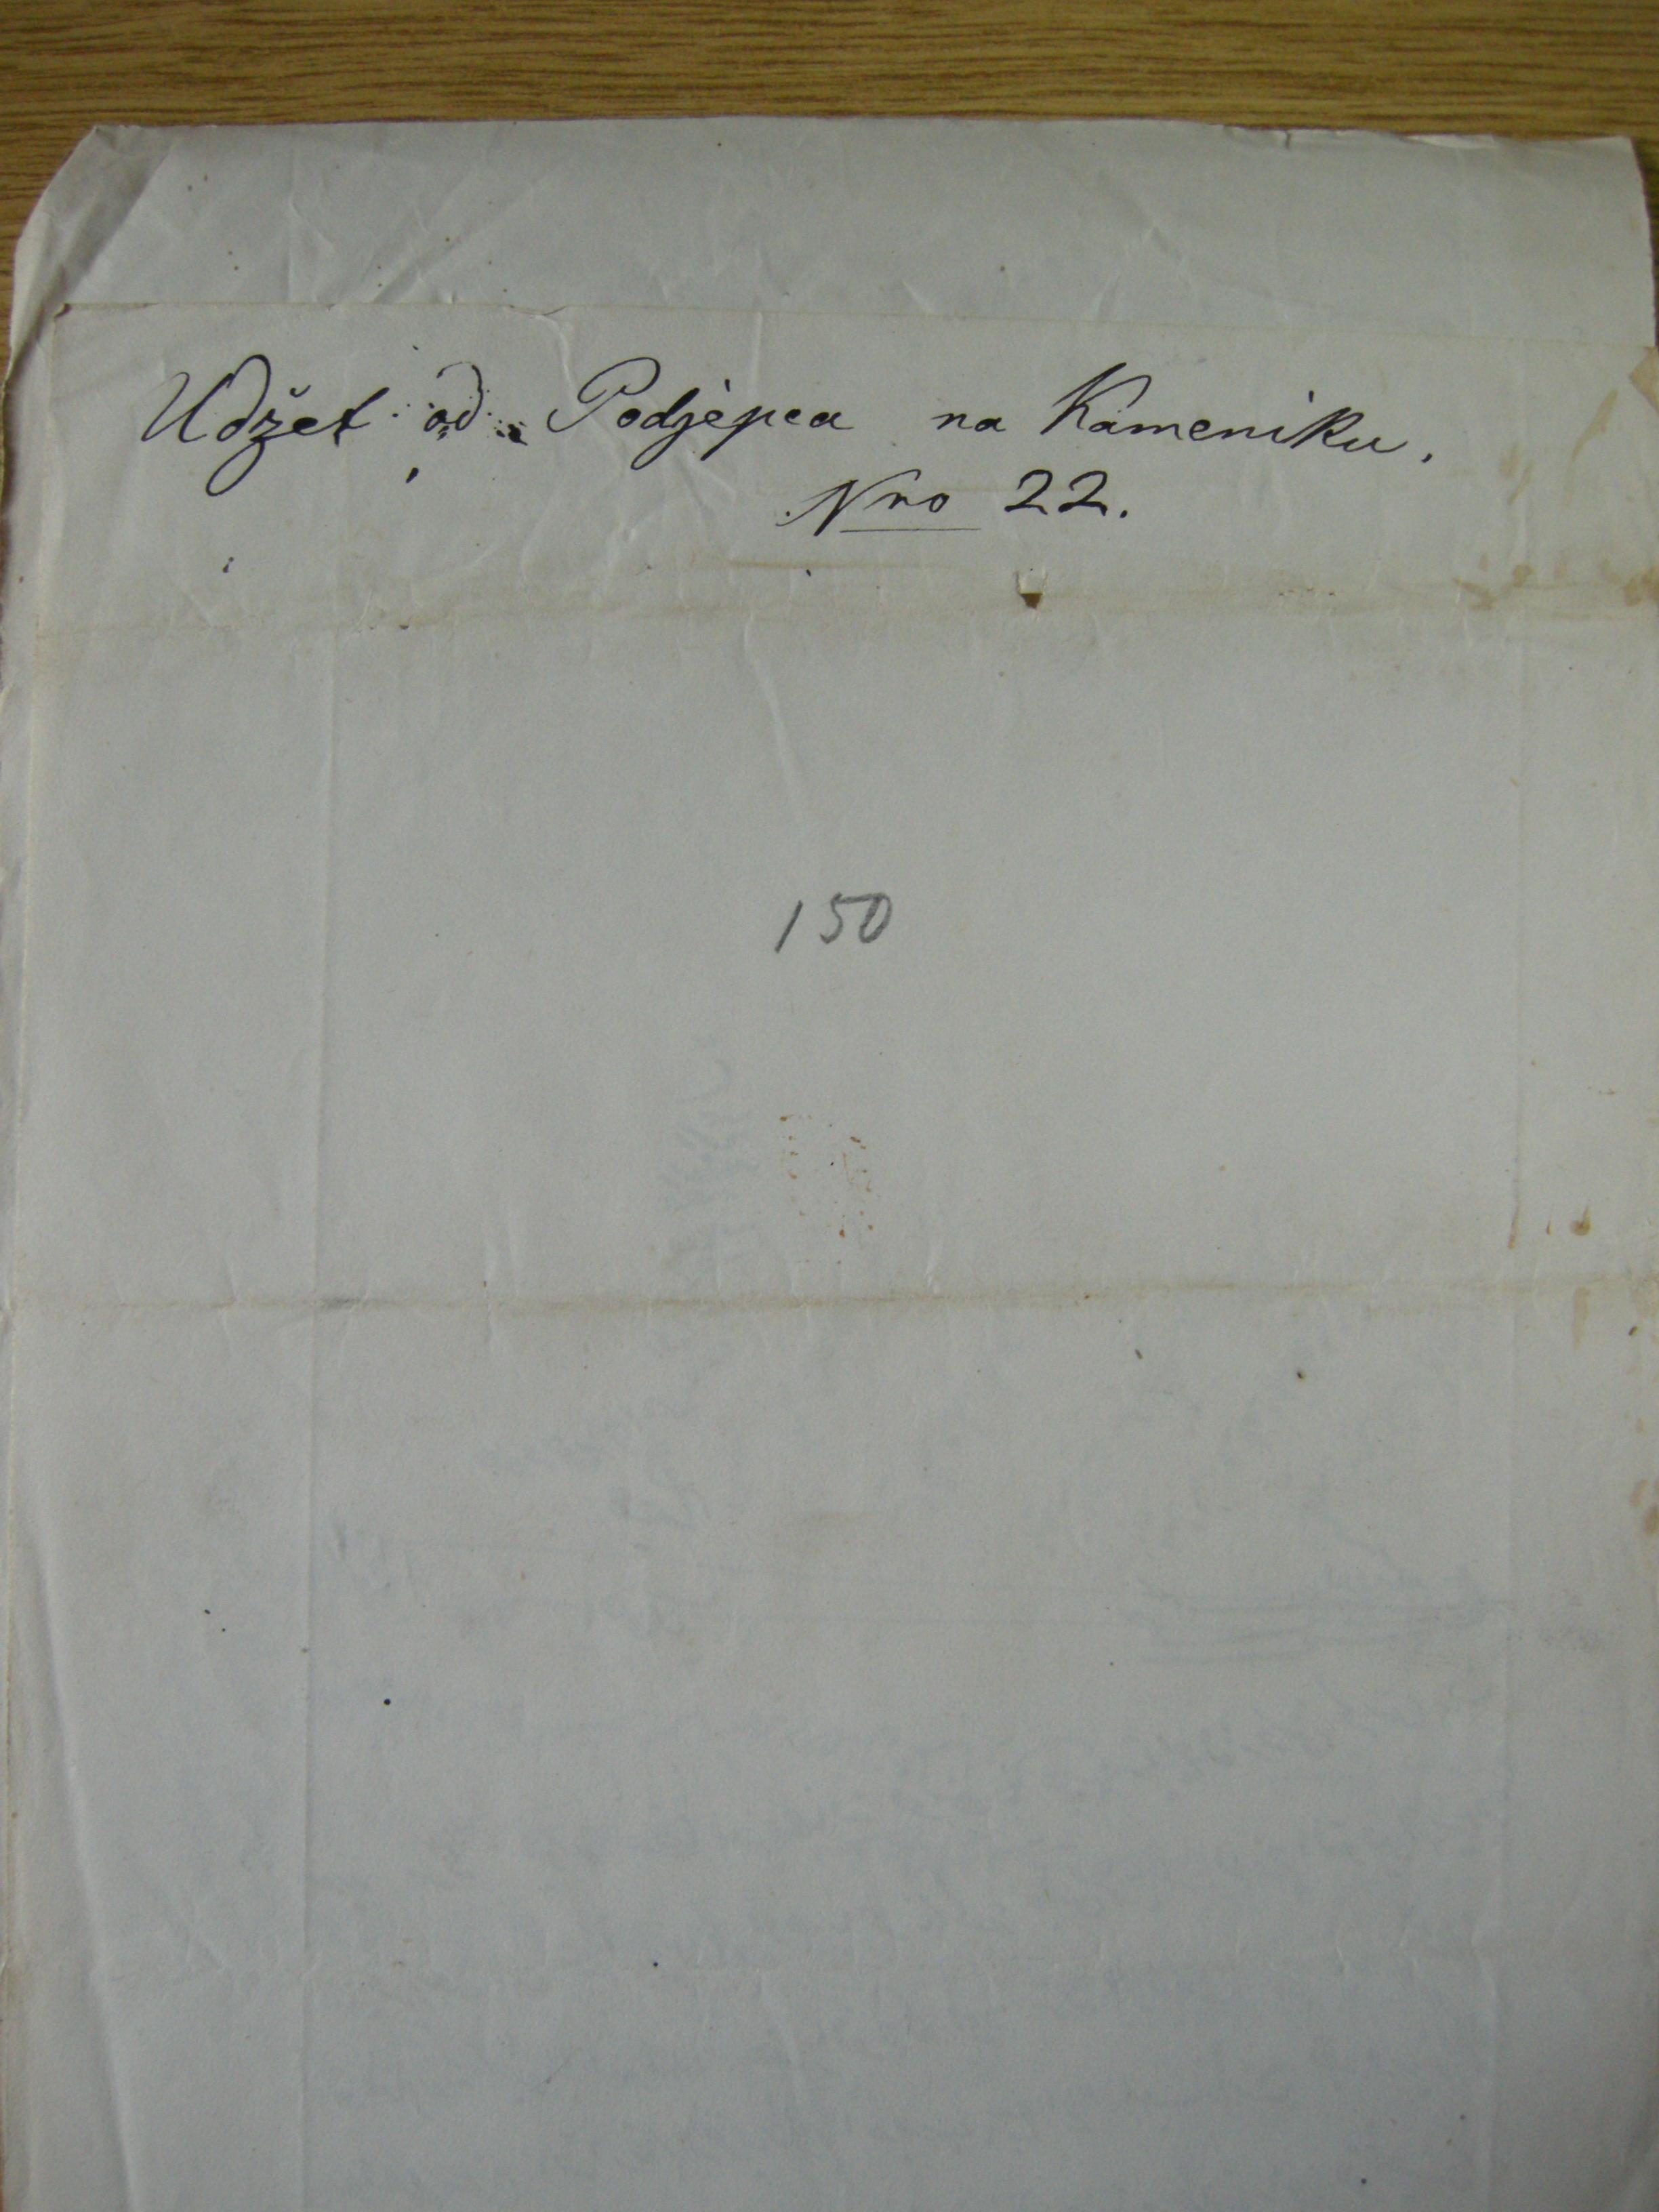 Udžet od Podjepca na Kameniku.
Nro 22.
150